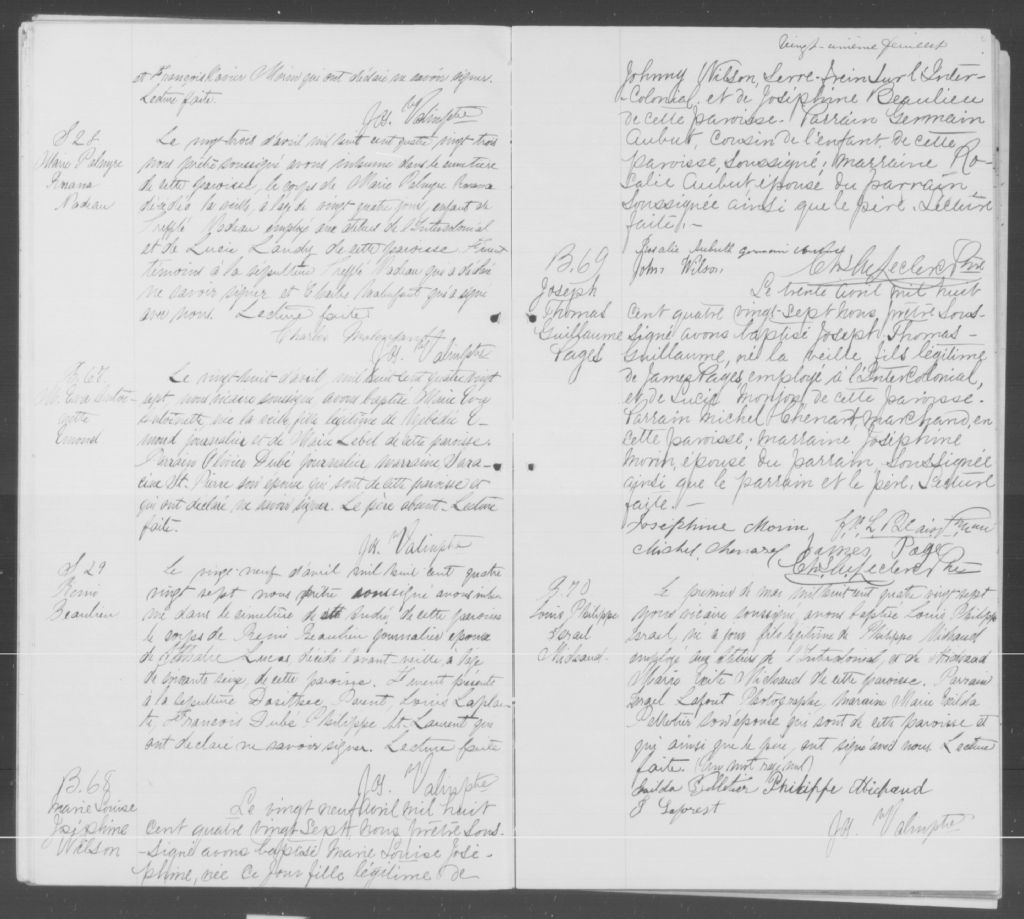 et François Xavier Morin qui ont déclaré ne savoir signer.
Lecture faite.
Jos. Val. ptre
S 28
Marie Palmyre
Roxana
Nadeau
Le vingt trois d'avril mil huit cent quatre vingt trois
nous prêtre soussigné avons inhumé dans le cimetière
de cette paroisse, le corps de Marie Palmyre Roxana
décédée la veille, à l'âge de vingt quatre jours, enfant de
Trefflé Nadeau employé aux ateliers de l'Intercolonial
et de Lucie Landry de cette paroisse. Furent
témoins à la sépulture Trefflé Nadeau qui a déclaré
ne savoir signer et Charles qui a signé
avec nous. Lecture faite
Charles
Jos. Val. ptre
B. 67.
M. Eva Antoi-
nette
Emond
Le vingt-huit d'avril, mil huit cent quatre vingt
sept, nous vicaire soussigné avons baptisé Marie Eva
Antoinette, née la veille, fille légitime de E-
mond journalier et de Marie Lebel de cette paroisse.
Parrain Olivier Dubé journalier marraine Sara-
St. Pierre son épouse qui sont de cette paroisse et
qui ont déclaré ne savoir signer. Le père absent. Lecture
faite.
Jos. Val. ptre
S 29
Rémi
Beaulieu
Le vingt neuf d'avril mil huit cent quatre
vingt sept nous prêtre soussigné avons inhu-
mé dans le cimetière de cette paroisse
le corps de Rémi Beaulieu journalier époux
de Lucas, décédé l'avant-veille, à l'âge
de soixante seize, de cette paroisse. Furent présents
à la sépulture Dosithée Parent, Louis Laplan-
te, François Dubé Philippe St. Laurent qui
ont déclaré ne savoir signer. Lecture faite
Jos. Val. ptre
B. 68
Marie Louise
Joséphine
Wilson
Le vingt neuf avril mil huit
cent quatre vingt Sept Nous prêtre Sous-
-signé avons baptisé Marie Louise José-
phine, née ce jour fille légitime de
vingt-unième feuillet
Johnny Wilson, Serre-frein Sur l'Inter-
-Colonial et de Joséphine Beaulieu
de cette paroisse. Parrain Germain
Aubut, Cousin de l'enfant de cette
paroisse, Soussigné; marraine Ro-
salie Aubut épouse du parrain
Soussignée ainsi que le père. Lecture
faite.-
Rosalie Aubutt
John Wilson,
Chs. M. Leclerc Ptre
B. 69
Joseph
Thomas
Guillaume
Pagés
Le trente avril mil huit
Cent quatre vingt Sept nous prêtre Sous-
Signé avons baptisé Joseph Thomas-
Guillaume, né la veille, fils légitime
de James Pagés, employé à l'Intercolonial,
et de Lucie Monjon de cette paroisse.
Parrain Michel Chenart, Marchand, en
cette paroisse; marraine Joséphine
Morin, épouse du parrain, Soussignée
ainsi que le parrain et le père. Lecture
faite.-
Josephine Morin
Michel Chenard James Page
Chs. M. Leclerc Ptre
B. 70
Louis Philippe
Israel
Michaud
Le premier de mai mil huit cent quatre vingt sept
nous vicaire soussigné, avons baptisé Louis Philippe
Israel, né ce jour fils légitime de Philippe Michaud
employé aux ateliers de l'Intercolonial, et de
Marie Michaud de cette paroisse. Parrain
Israel Laforest Photographe marraine Marie Exilda
Pelletier son épouse qui sont de cette paroisse et
qui ainsi que le père, ont signé avec nous. Lecture
faite. (Un mot rayé nul)
Exilda Pelletier Philippe Michaud
I Laforest
Jos. Val. ptre